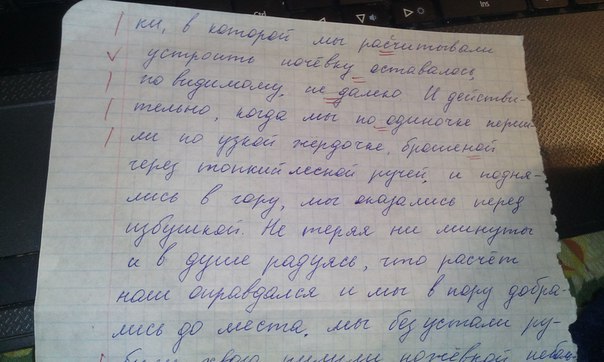 ки, в которой мы расчитывали
устроить ночёвку оставалось
по видимому, не далеко И действи-
тельно, когда мы по одиночке переш-
ли по узкой жердочке, брошеной
через топкий лесной ручей, и подня-
лись в гору, мы оказались перед
избушкой. Не теряя ни минуты
и в душе радуясь, что расчёт
наш оправдался и мы в пору добра-
лись до места, мы без устали ру-